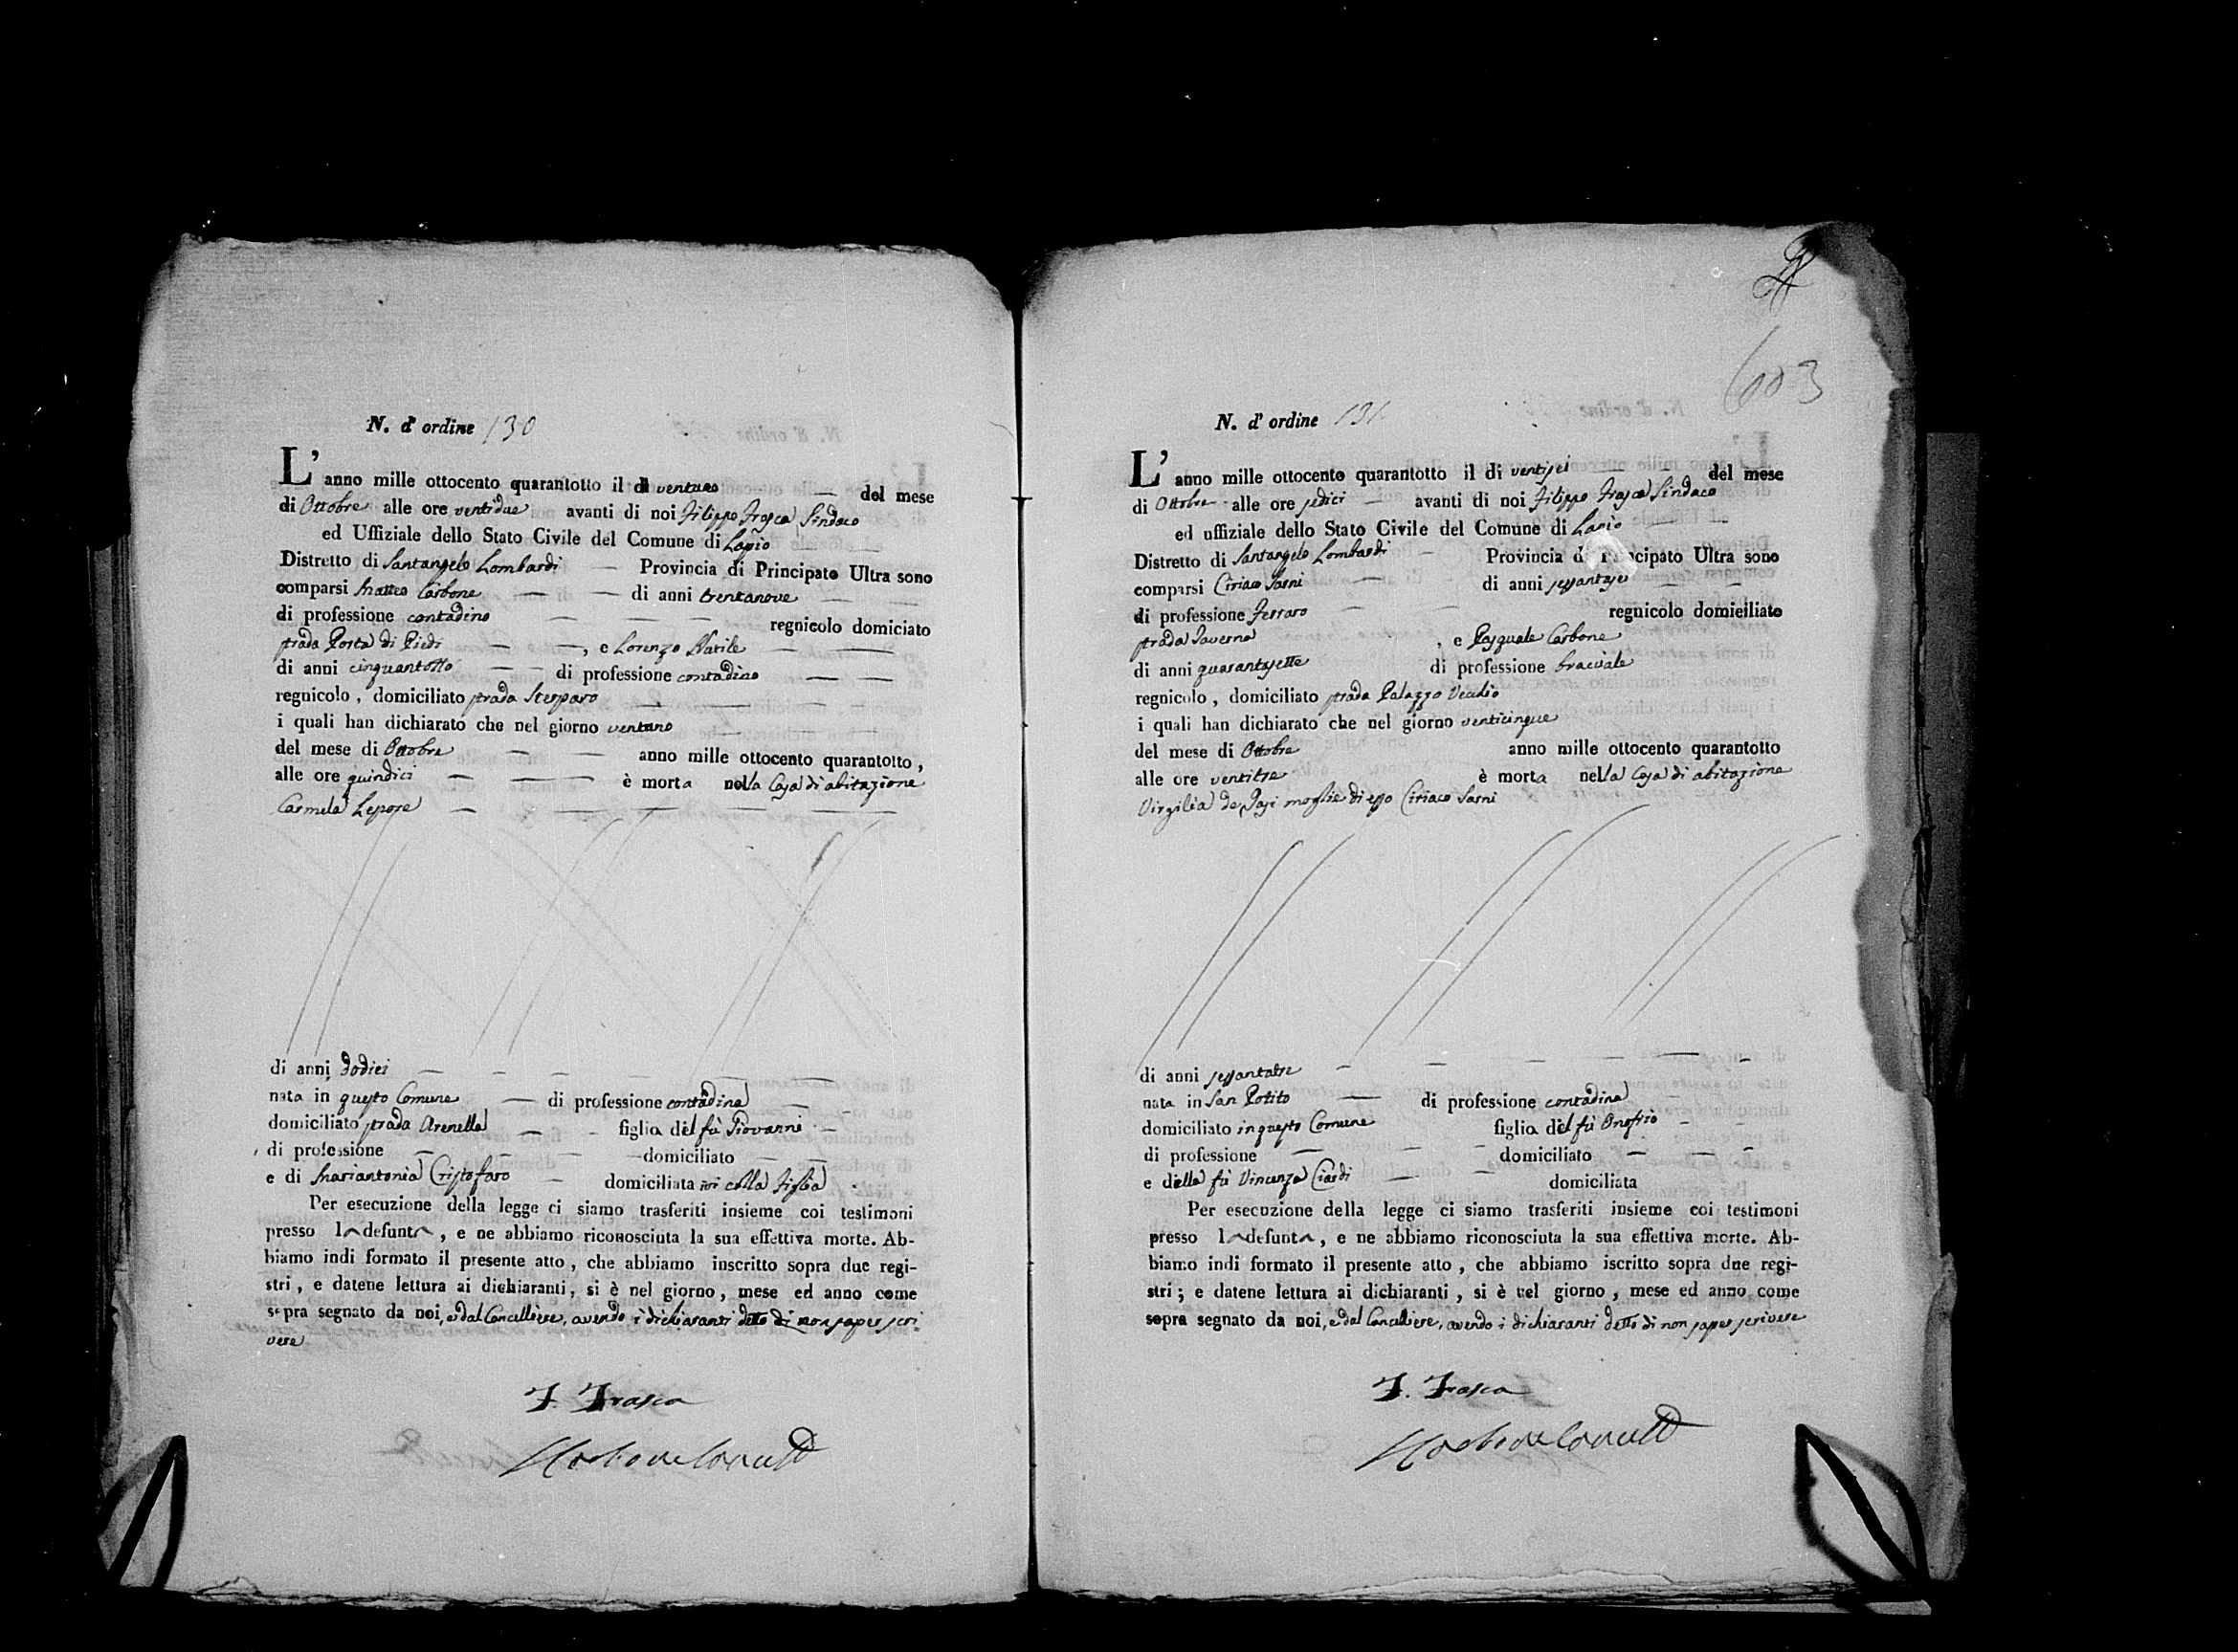 N. d' ordine 130
L' anno mille ottocento quarantotto il dì ventuno — del mese
di Ottobre alle ore ventidue avanti di noi Filippo Frasca Sindaco
ed Uffiziale dello Stato Civile del Comune di Lapio
Distretto di Santangelo Lombardi — Provincia di Principato Ultra sono
comparsi Matteo Carbone — — di anni trentanove —
di professione contadino — — — regnicolo domiciato
strada Porta di Piedi — —, e Lorenzo — —
di anni cinquantotto — — di professione contadino — —
regnicolo, domiciliato strada Sterparo — — — —
i quali han dichiarato che nel giorno ventuno — —
del mese di Ottobre — — anno mille ottocento quarantotto,
alle ore quindici — — — è morta nella Casa di abitazione
Carmela Lepore — — — — —
di anni dodici — — — — —
nata in questo Comune — di professione contadina — -
domiciliato strada Arenella — - figlia del fù Giovanni -
di professione — — — — domiciliato — —
e di Mariantonia Cristofaro — domiciliata ivi colla figlia .
Per esecuzione della legge ci siamo trasferiti insieme coi testimoni
presso la defunta, e ne abbiamo riconosciuta la sua effettiva morte. Ab-
biamo indi formato il presente atto, che abbiamo inscritto sopra due regi-
stri, e datene lettura ai dichiaranti, si è nel giorno, mese ed anno come
sopra segnato da noi, e dal Cancelliere, avendo i dichiaranti detto di non saper scri
vere
F. Frasca
603
N. d' ordine 131
L' anno mille ottocento quarantotto il di ventisei — — del mese
di Ottobre alle ore sedici — avanti di noi Filippo Frasca Sindaco
ed uffiziale dello Stato Civile del Comune di Lapio —
Distretto di Santangelo Lombardi — Provincia di Principato Ultra sono
comparsi Ciriaco Sarni — di anni sessantasei — —
di professione Ferraro — — regnicolo domiciliato
strada Taverna , e Pasquale Carbone
di anni quarantasette di professione bracciale
regnicolo, domiciliato strada Palazzo Vecchio
i quali han dichiarato che nel giorno venticinque
del mese di Ottobre anno mille ottocento quarantotto
alle ore ventitre è morta nella Casa di abitazione
Virgilia de Pasi moglie di esso Ciriaco Sarni
di anni sessantatre — — — — — -
nata in San Potito — di professione contadina —
domiciliato in questo Comune — - figlia del fù Onofrio - -
di professione — — - - domiciliato — — -
e della fù Vincenza Ciardi — — domiciliata
Per esecuzione della legge ci siamo trasferiti insieme coi testimoni
presso la defunta, e ne abbiamo riconosciuta la sua effettiva morte. Ab-
biamo indi formato il presente atto, che abbiamo iscritto sopra due regi-
stri; e datene lettura ai dichiaranti, si è nel giorno, mese ed anno come
sopra segnato da noi, e dal Cancelliere, avendo i dichiaranti detto di non saper scrivere
F. Frasca